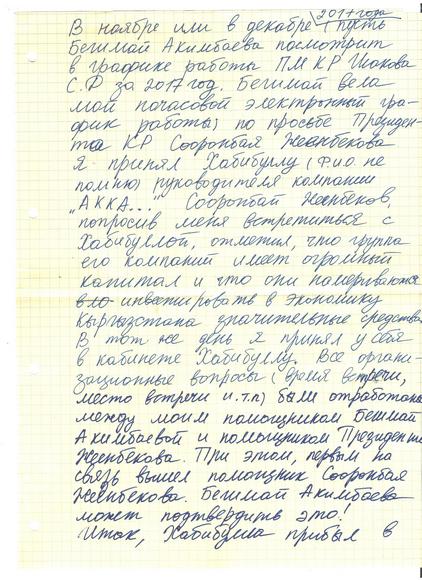 2017 года
В ноябре или в декабре (пусть
Бегимай Акимбаева посмотрит
в графике работы ПМ КР Исакова
С.Ф за 2017 год. Бегимай вела
мой почасовой электронный гра-
фик работы) по просьбе Президен-
та КР Сооронбая Жеенбекова
я принял Хабибуллу (Фио не
помню) руководителя компании
„АККА..." Сооронбай Жеенбеков,
попросив меня встретиться с
Хабибуллой, отметил, что группа
его компаний имеет огромный
капитал и что они намериваются
инвестировать в экономику
Кыргызстана значительные средства.
В тот же день я принял у себя
в кабинете Хабибуллу. Все органи-
зационные вопросы (время встречи,
место встречи и.т.п) были отработаны
между моим помощником Бегимай
Акимбаевой и помощником Президента
Жеенбекова. При этом, первым на
связь вышел помощник Сооронбая
Жеенбекова. Бегимай Акимбаева
может подтвердить это!
Итак, Хабибулла прибыл в